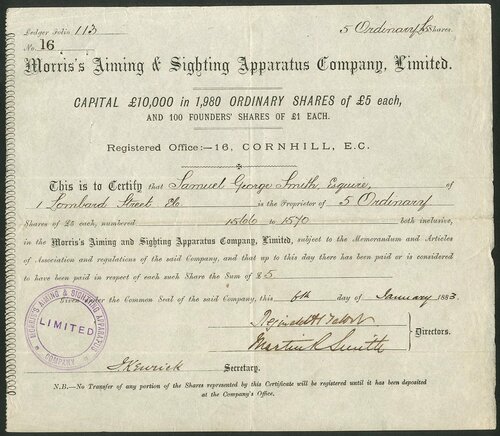 Ledger Folio 113
5 Ordinary £5 Shares.
No. 16
Morris's Aiming & Sighting Apparatus Company, Limited.
CAPITAL £10,000 in 1,980 ORDINARY SHARES of £5 each,
AND 100 FOUNDERS' SHARES OF £1 EACH.
Registered Office:—16, CORNHILL, E.C.
This is to Certify that Samuel George Smith, Esquire, of
1 Lombard Street is the Proprietor of 5 Ordinary
Shares of £5 each, numbered 1566 to 1570 both inclusive,
in the Morris's Aiming and Sighting Apparatus Company, Limited, subject to the Memorandum and Articles
of Association and regulations of the said Company, and that up to this day there has been paid or is considered
to have been paid in respect of each such Share the Sum of £5
Given under the Common Seal of the said Company, this 6th day of January 1883.
MORRIS'S AIMING & SIGHTING APPARATUS
LIMITED
COMPANY
Martin R Smith
Directors.
J. Kenrick Secretary.
N.B.—No Transfer of any portion of the Shares represented by this Certificate will be registered until it has been deposited
at the Company's Office.